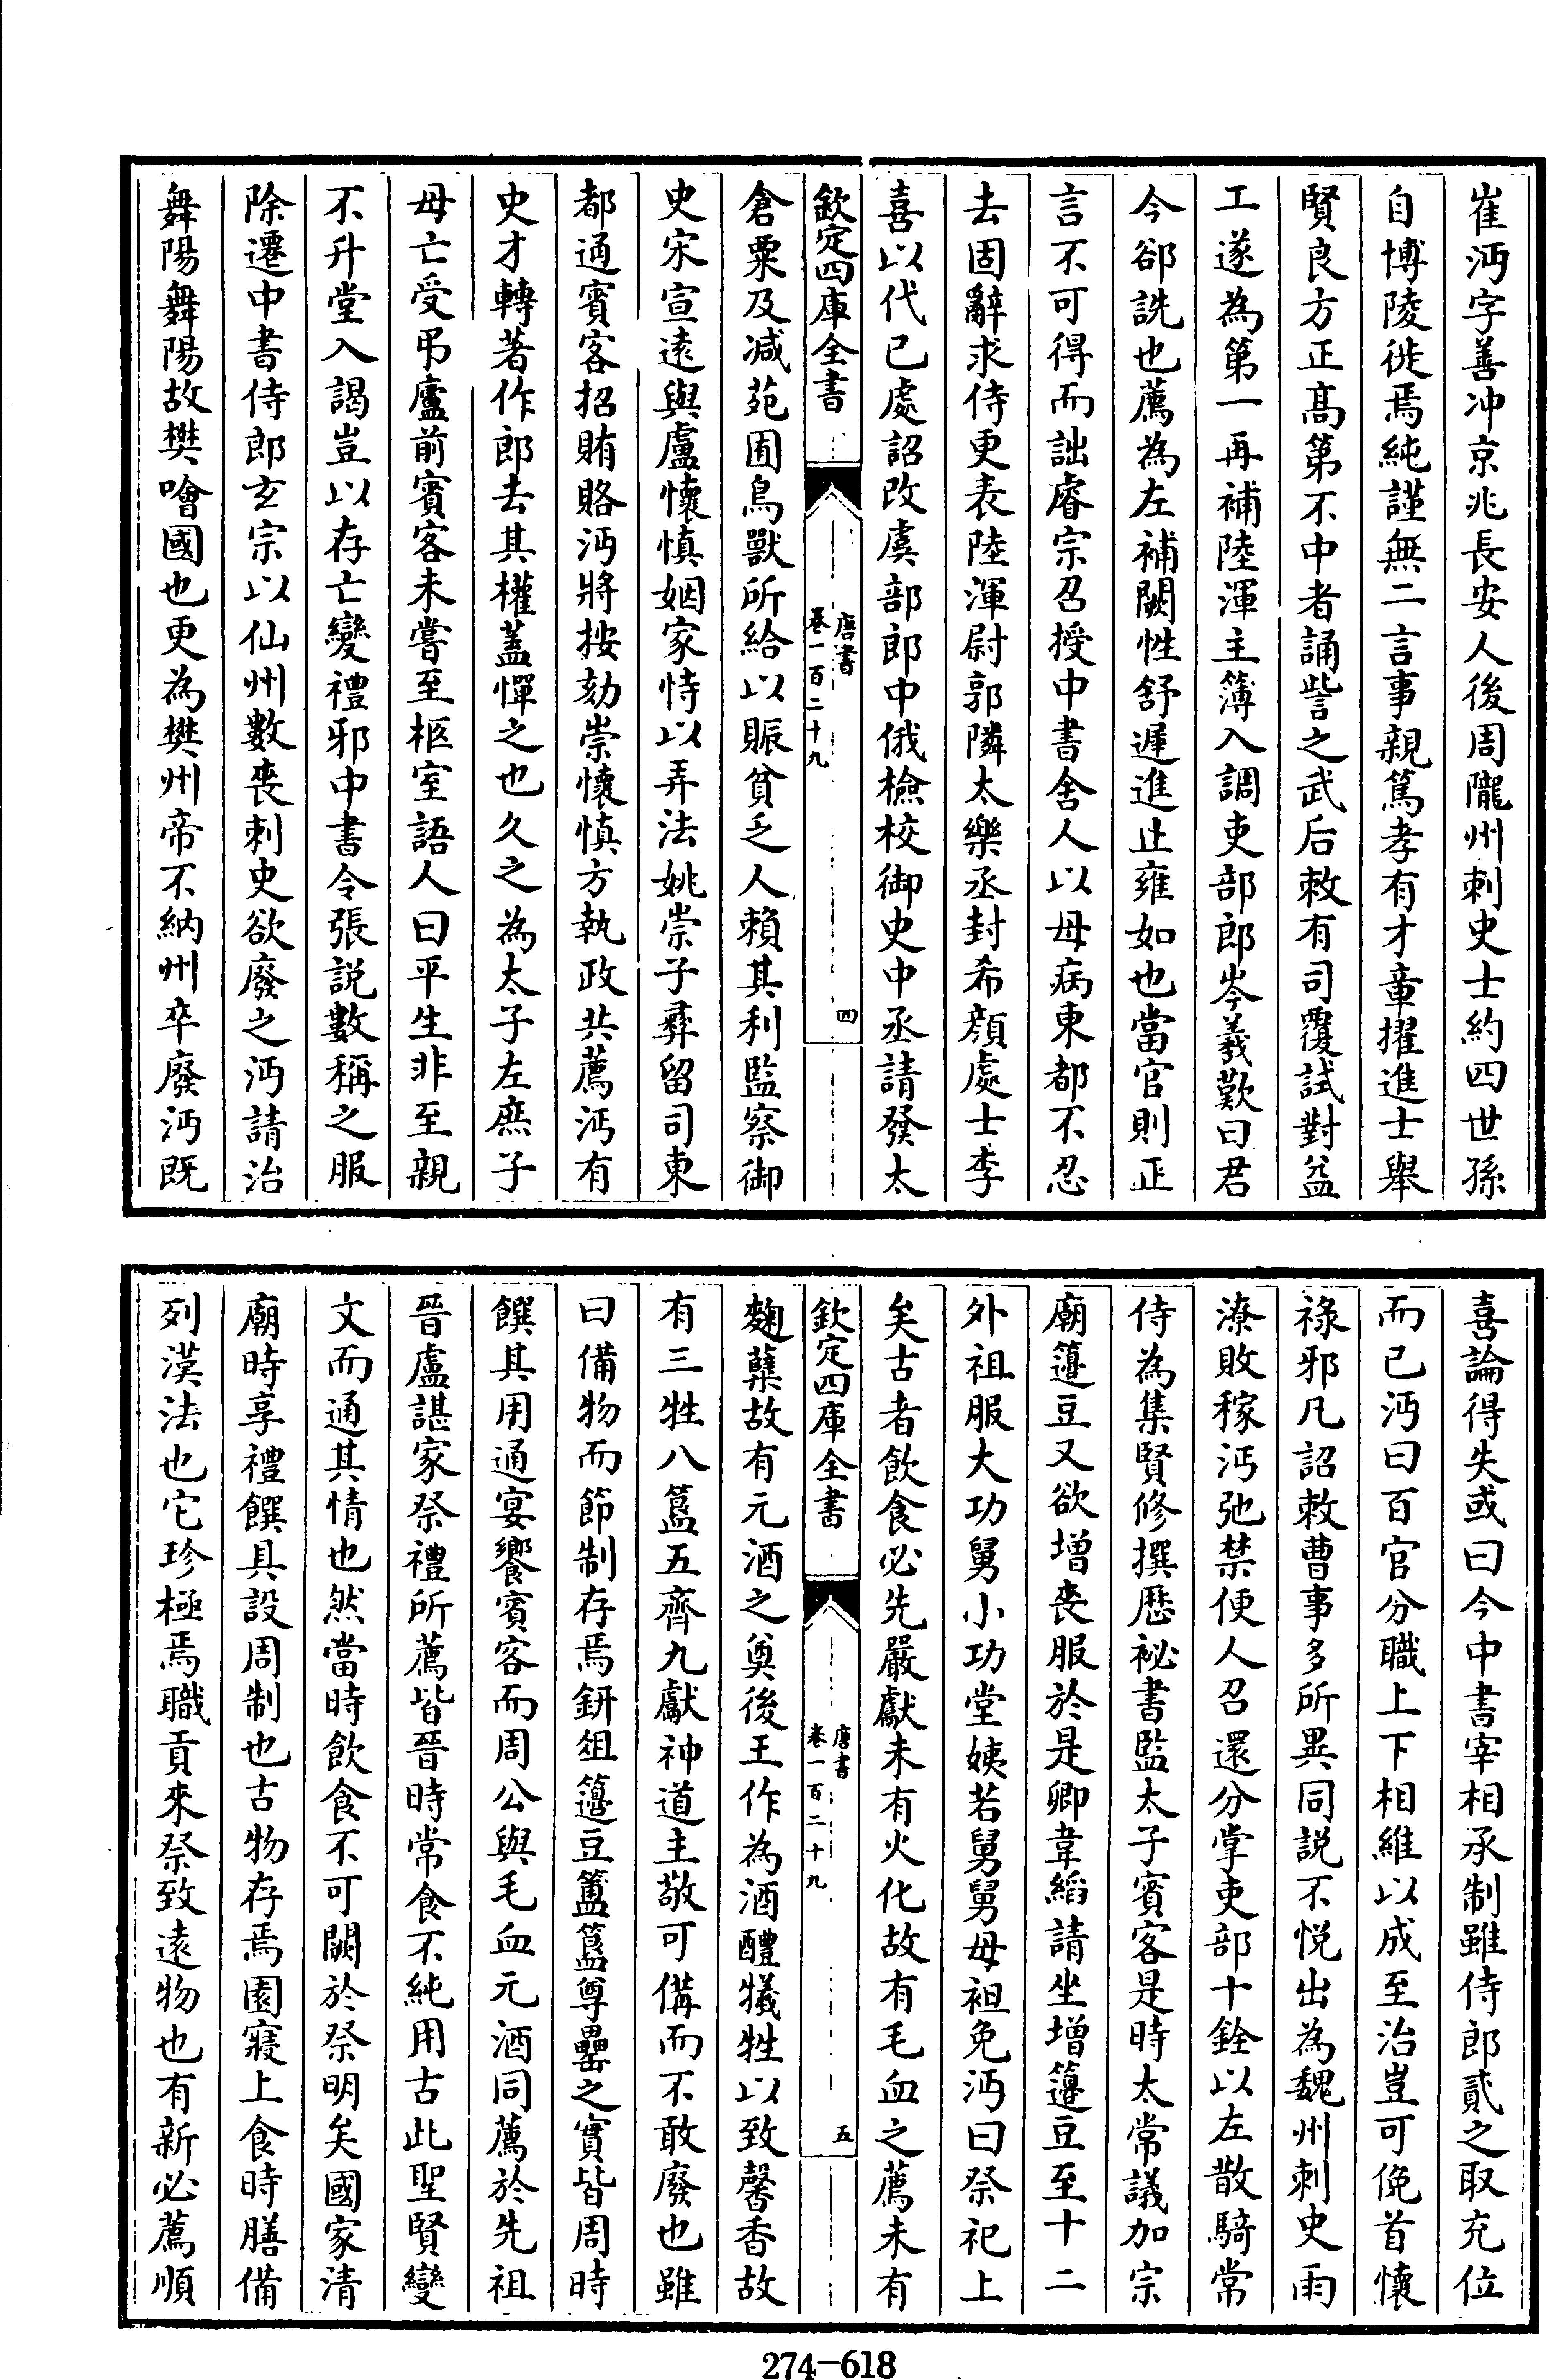 崔沔字善冲京兆長安人後周隴州刺史士約四世孫
自博陵徙焉純謹無二言事親篤孝有才章擢進士舉
賢良方正髙第不中者誦訾之武后敕有司覆試對益
工遂為第一再補陸渾主簿入調吏部郎岑羲歎曰君
今郤詵也薦為左補闕性舒遲進止雍如也當官則正
言不可得而詘睿宗召授中書舍人以母病東都不忍
去固辭求侍更表陸渾尉郭隣太樂丞封希顔處士李
喜以代已處詔改虞部郎中俄檢校御史中丞請發太
欽定四庫全書
唐書
卷一百二十九
四
倉粟及減苑囿鳥獸所給以賑貧乏人賴其利監察御
史宋宣逺與盧懷慎姻家恃以弄法姚崇子彛留司東
都通賓客招賄賂沔將按劾崇懷慎方執政共薦沔有
史才轉著作郎去其權蓋憚之也久之為太子左庶子
母亡受弔廬前賓客未嘗至柩室語人曰平生非至親
不升堂入謁豈以存亡變禮邪中書令張説數稱之服
除遷中書侍郎玄宗以仙州數喪刺史欲廢之沔請治
舞陽舞陽故樊噲國也更為樊州帝不納州卒廢沔既
喜論得失或曰今中書宰相承制雖侍郎貳之取充位
而已沔曰百官分職上下相維以成至治豈可俛首懷
祿邪凡詔敕曹事多所異同説不悅出為魏州刺史雨
潦敗稼沔弛禁便人召還分掌吏部十銓以左散騎常
侍為集賢修撰歴祕書監太子賓客是時太常議加宗
廟籩豆又欲增喪服於是卿韋縚請坐增籩豆至十二
外祖服大功舅小功堂姨若舅舅母袒免沔曰祭祀上
矣古者飲食必先嚴獻未有火化故有毛血之薦未有
欽定四庫全書
唐書
卷一百二十九
五
麴蘖故有元酒之奠後王作為酒醴犧牲以致馨香故
有三牲八簋五齊九獻神道主敬可備而不敢廢也雖
曰備物而節制存焉鈃俎籩豆簠簋尊罍之實皆周時
饌其用通宴饗賓客而周公與毛血元酒同薦於先祖
晉盧諶家祭禮所薦皆晉時常食不純用古此聖賢變
文而通其情也然當時飲食不可闕於祭明矣國家清
廟時享禮饌具設周制也古物存焉園寢上食時膳備
列漢法也它珍極焉職貢來祭致逺物也有新必薦順
274-618